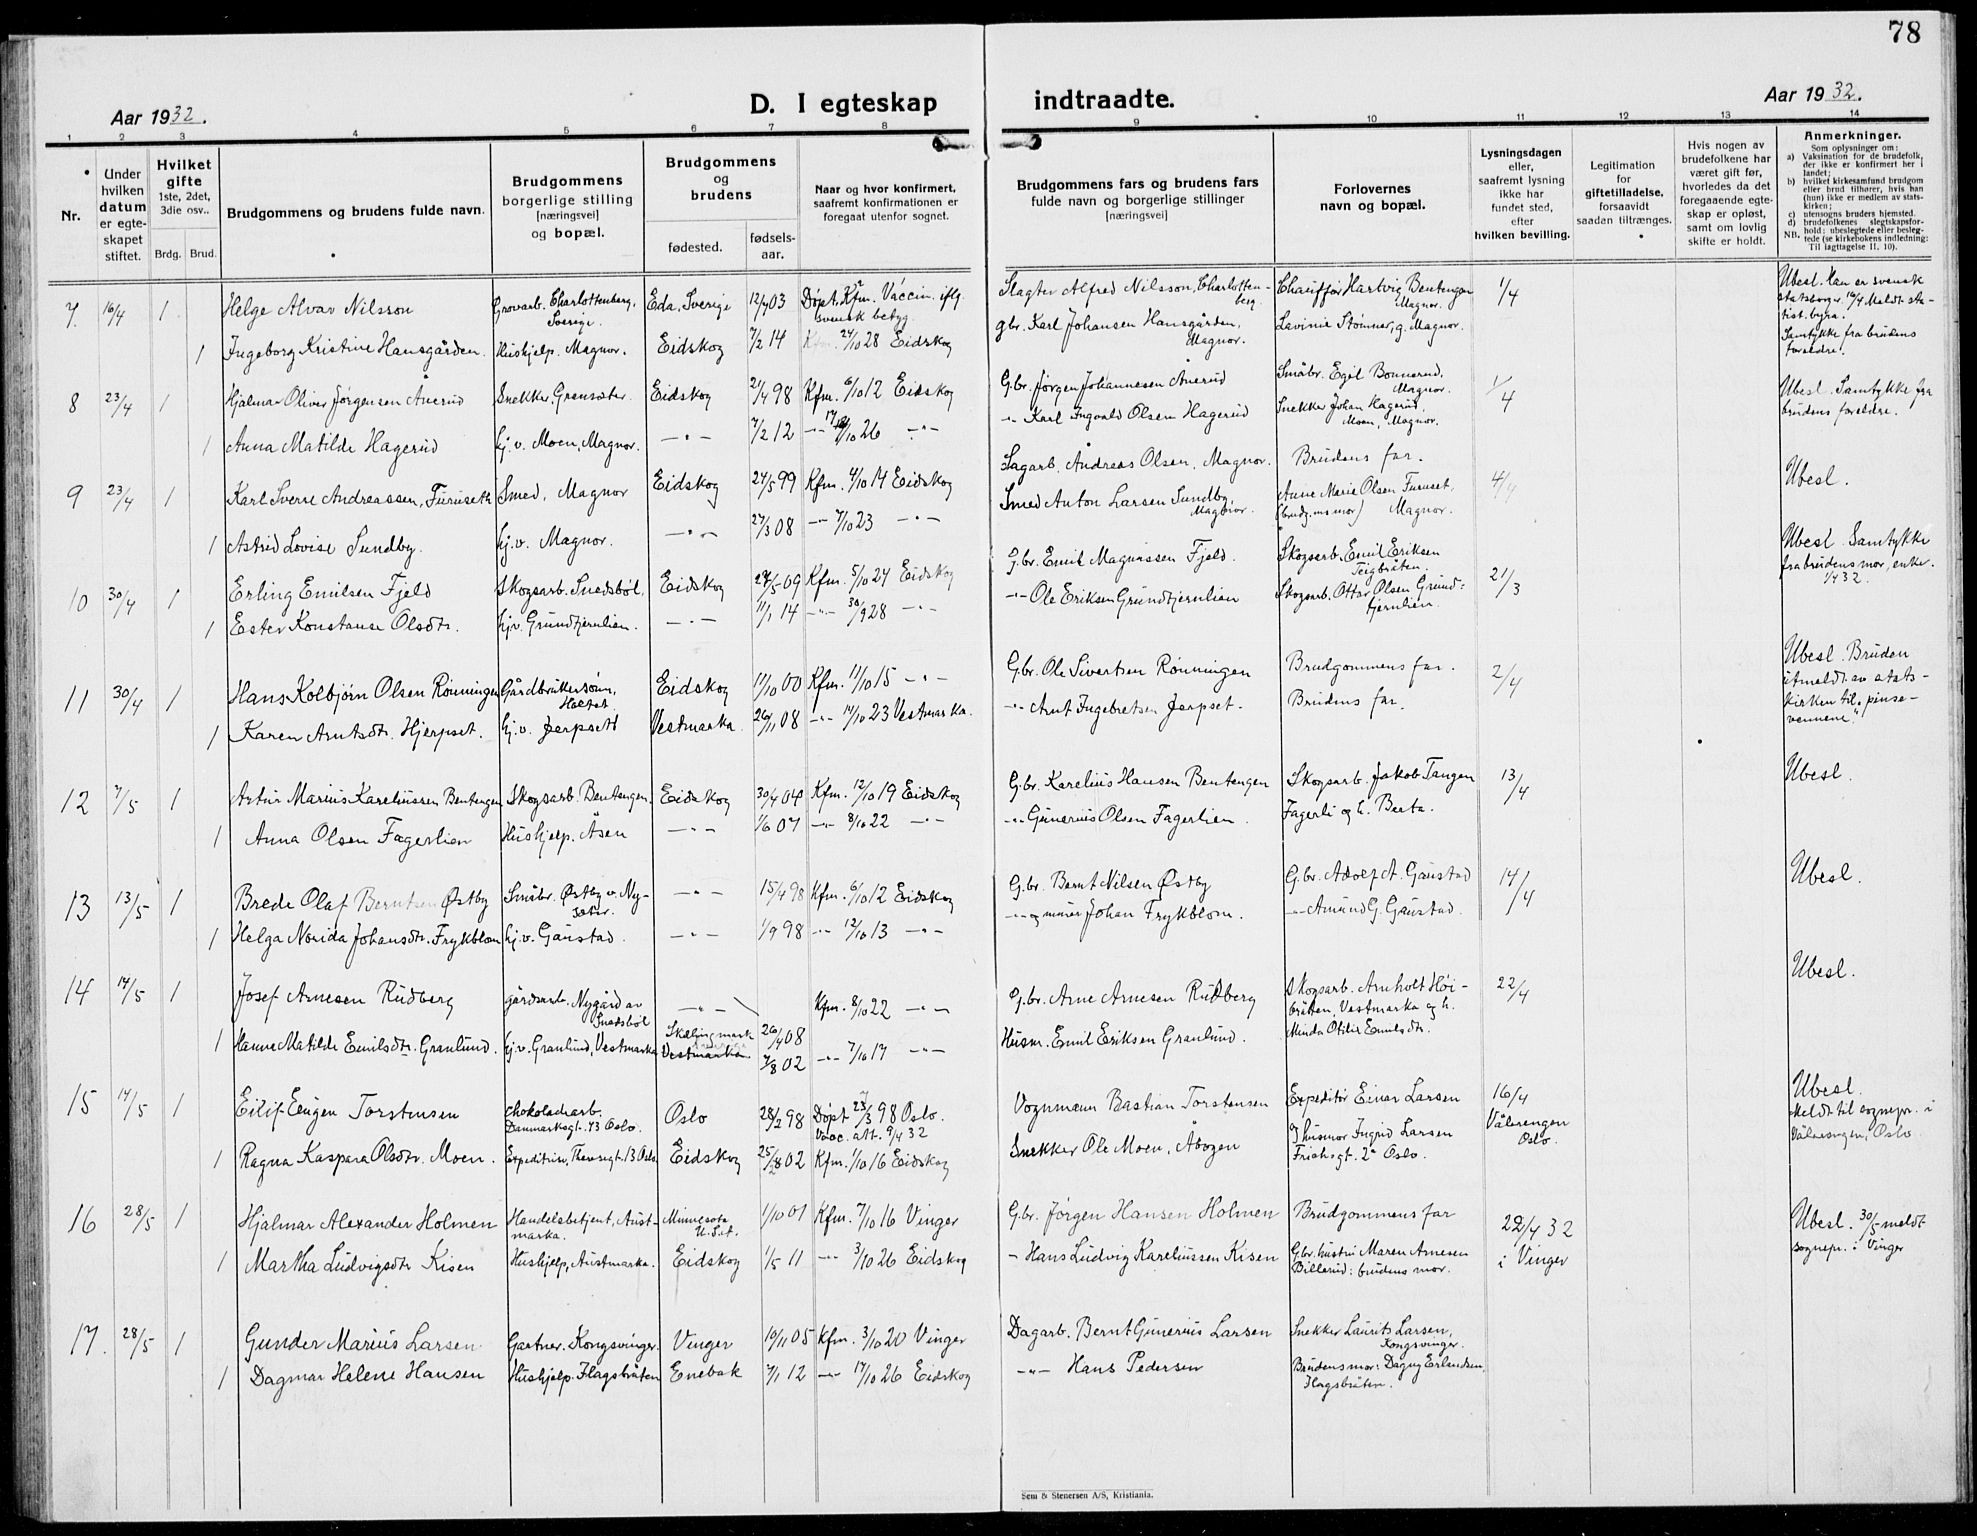 78
Aar 1932.
D. I egteskap
indtraadte.
Aar 1932.
1 2 3 4 5 6 7 8 9 10 11 12 13 14
Nr.
Under hvilken datum er egteskapet stiftet.
Hvilket gifte 1ste, 2det, 3die osv..
Brdg. Brud.
Brudgommens og brudens fulde navn.
Brudgommens borgerlige stilling [næringsvei] og bopæl.
Brudgommens og brudens
fødested.
fødsels-aar.
Naar og hvor konfirmert, saafremt konfirmationen er foregaat utenfor sognet.
Brudgommens fars og brudens fars fulde navn og borgerlige stillinger [næringsvei]
Forlovernes navn og bopæl.
Lysningsdagen eller, saafremt lysning ikke har fundet sted, efter hvilken bevilling.
Legitimation for giftetilladelse, forsaavidt saadan tiltrænges.
Hvis nogen av brudefolkene har været gift før, hvorledes da det foregaaende egteskap er opløst, samt om lovlig skifte er holdt.
Anmerkninger.
Som oplysninger om:
a) Vaksination for de brudefolk, der ikke er konfirmert her i landet;
b) hvilket kirkesamfund brudgom eller brud tilhører, hvis han (hun) ikke er medlem av statskirken;
c) utensogns bruders hjemsted.
d) brudefolkenes slegtskapsforhold: ubeslegtede eller beslegtede (se kirkebokens indledning: Til iagttagelse II, 10).
NB.
7. 16/4 1 Helge Alvar Nilsson Grovarb. Charlottenberg, Sverige. Eda, Sverige 12/4 03 Døpt, Kfm. Vaccin. iflg. svensk betyg. Slagter Alfred Nilsson, Charlottenberg. Chauffør Hartvig Bentengen Magnor. 1/4 Ubesl. Han er svensk statsborger. 16/4 Meldt statist. byrå. Samtykke fra brudens foreldre.
1 Ingeborg Kristine Hansgården. Hushjelp. Magnor. Eidskog 7/2 14 Kfm. 24/10 28 Eidskog gbr. Karl Johansen Hansgården, Magnor. Lavinie Stømner, g. Magnor.
8 23/4 1 Hjalmar Oliver Jørgensen Ånerud Snekker Grensæter. Eidskog 21/4 98 Kfm. 6/10 12 Eidskog G.br. Jørgen Johannesen Ånerud Småbr. Egil Bonnerud, Magnor. 1/4 Ubesl. Samtykke fra brudens foreldre.
1 Anna Matilde Hagerud hj. v. Moen, Magnor. —"— 7/2 12 —"— 17/10 26 —"— —"— Karl Ingvald Olsen Hagerud Snekker Johan Hagerud, Moen, Magnor.
9 23/4 1 Karl Sverre Andreassen, Furuseth Smed, Magnor Eidskog 24/5 99 Kfm. 4/10 14 Eidskog Sagarb. Andreas Olsen, Magnor. Brudens far. 4/4 Ubesl.
1 Astrid Lovise Sundby. hj. v. Magnor. —"— 27/3 08 —"— 7/10 23 —"— Smed Anton Larsen Sundby, Magnor. Anne Marie Olsen Furuset, (brudg.ms mor) Magnor.
10 30/4 1 Erling Emilsen Fjeld Skogsarb. Snedsbøl. Eidskog 27/5 09 Kfm. 5/10 24 Eidskog G.br. Emil Magnussen Fjeld. Skogsarb. Emil Eriksen Teigbråten. 21/3 Ubesl. Samtykke fra brudens mor, enke. 1/4 32.
1 Ester Konstanse Olsdtr. hj.v. Grundtjernlien. —"— 11/1 14 —"— 30/9 28 —"— —"— Ole Eriksen Grundtjernlien Skogsarb. Ottar Olsen Grundtjernlien.
11 30/4 1 Hans Kolbjørn Olsen Rønningen Gårdbrukersønn, Holtet. Eidskog 11/10 00 Kfm. 11/10 15 —"— G.br. Ole Sivertsen Rønningen Brudgommens far. 2/4 Ubesl. Bruden utmeldt av statskirken til "pinsevennene".
1 Karen Arntsdtr. Hjerpset. hj. v. Jerpsett Vestmarka 26/11 08 —"— 14/10 23 Vestmarka. —"— Arnt Ingebretsen Jerpset. Brudens far.
12 7/5 1 Artur Marius Kareliussen Bentengen Skogsarb. Bentengen. Eidskog 30/4 04 Kfm. 12/10 19 Eidskog G.br. Karelius Hansen Bentengen Skogsarb. Jakob Tangen 13/4 Ubesl.
1 Anna Olsen Fagerlien Hushjelp. Åsen —"— 1/6 07 —"— 8/10 22 —"— —"— Gunerius Olsen Fagerlien. Fagerli og h. Berta.
13 13/5 1 Brede Olaf Berntsen Østby Småbr. Østby v. Nysæter. —"— 15/4 98 Kfm. 6/10 12 Eidskog G.br. Bernt Nilsen Østby G.br. Adolf A. Gaustad 14/4 Ubesl.
1 Helga Norida Johansdtr. Frykblom hj. v. Gaustad. —"— 1/9 98 —"— 12/10 13 —"— —"— og murer Johan Frykblom. —"— Amund G. Gaustad.
14 14/5 1 Josef Arnesen Rudberg gårdsarb. Nygård av Snedsbøl —"— Kfm. 8/10 22 —"— G.br. Arne Arnesen Rudberg Skogsarb. Arnholt Høibråten, Vestmarka og h. Minda Otilie Emilsdtr. 22/4 Ubesl.
1 Hanne Matilde Emilsdtr. Granlund. hj. v. Granlund, Vestmarka Vestmarka 26/4 08 7/8 02 —"— 7/10 17 —"— Husm. Emil Eriksen Granlund.
15 14/5 1 Eilif Eugen Torstensen Chokoladearb. Danmarksgt. 43 Oslo. Oslo 28/2 98 Døpt 27/3 98 Oslo. Vacc. att. 9/4 32 Vognmann Bastian Torstensen Expeditør Einar Larsen 16/4 Vålerengen Oslo. Ubesl. Meldt til sognepr. i Vålerengen, Oslo.
1 Ragna Kaspara Olsdtr. Moen. Expeditrise, Theresegt. 13 Oslo. Eidskog 25/8 02 Kfm. 1/10 16 Eidskog Snekker Ole Moen, Åbogen og husmor Ingrid Larsen Friishsgt. 2a Oslo.
16 28/5 1 Hjalmar Alexander Holmen Handelsbetjent, Austmarka. Minnesota U.S.A. 1/10 01 Kfm. 7/10 16 Vinger G.br. Jørgen Hansen Holmen Brudgommens far 22/4 32 i Vinger Ubesl. 30/5 meldt sognepr. i Vinger
1 Martha Ludvigsdtr Kisen Hushjelp, Austmarka. Eidskog 1/5 11 —"— 3/10 26 Eidskog — Hans Ludvig Kareliussen Kisen G.br. hustru Maren Arnesen Billerud: brudens mor.
17. 28/5 1 Gunder Marius Larsen Gartner. Kongsvinger. Vinger 10/11 05 Kfm. 3/10 20 Vinger Dagarb. Bernt Gunerius Larsen Snekker Laurits Larsen, Kongsvinger.
1 Dagmar Helene Hansen Hushjelp. Flagsbråten Enebak 7/1 12 —"— 17/10 26 Eidskog —"— Hans Pedersen Brudens mor: Dagny Erlandsen, Flagsbråten.
Sem & Stenersen A/S, Kristiania.